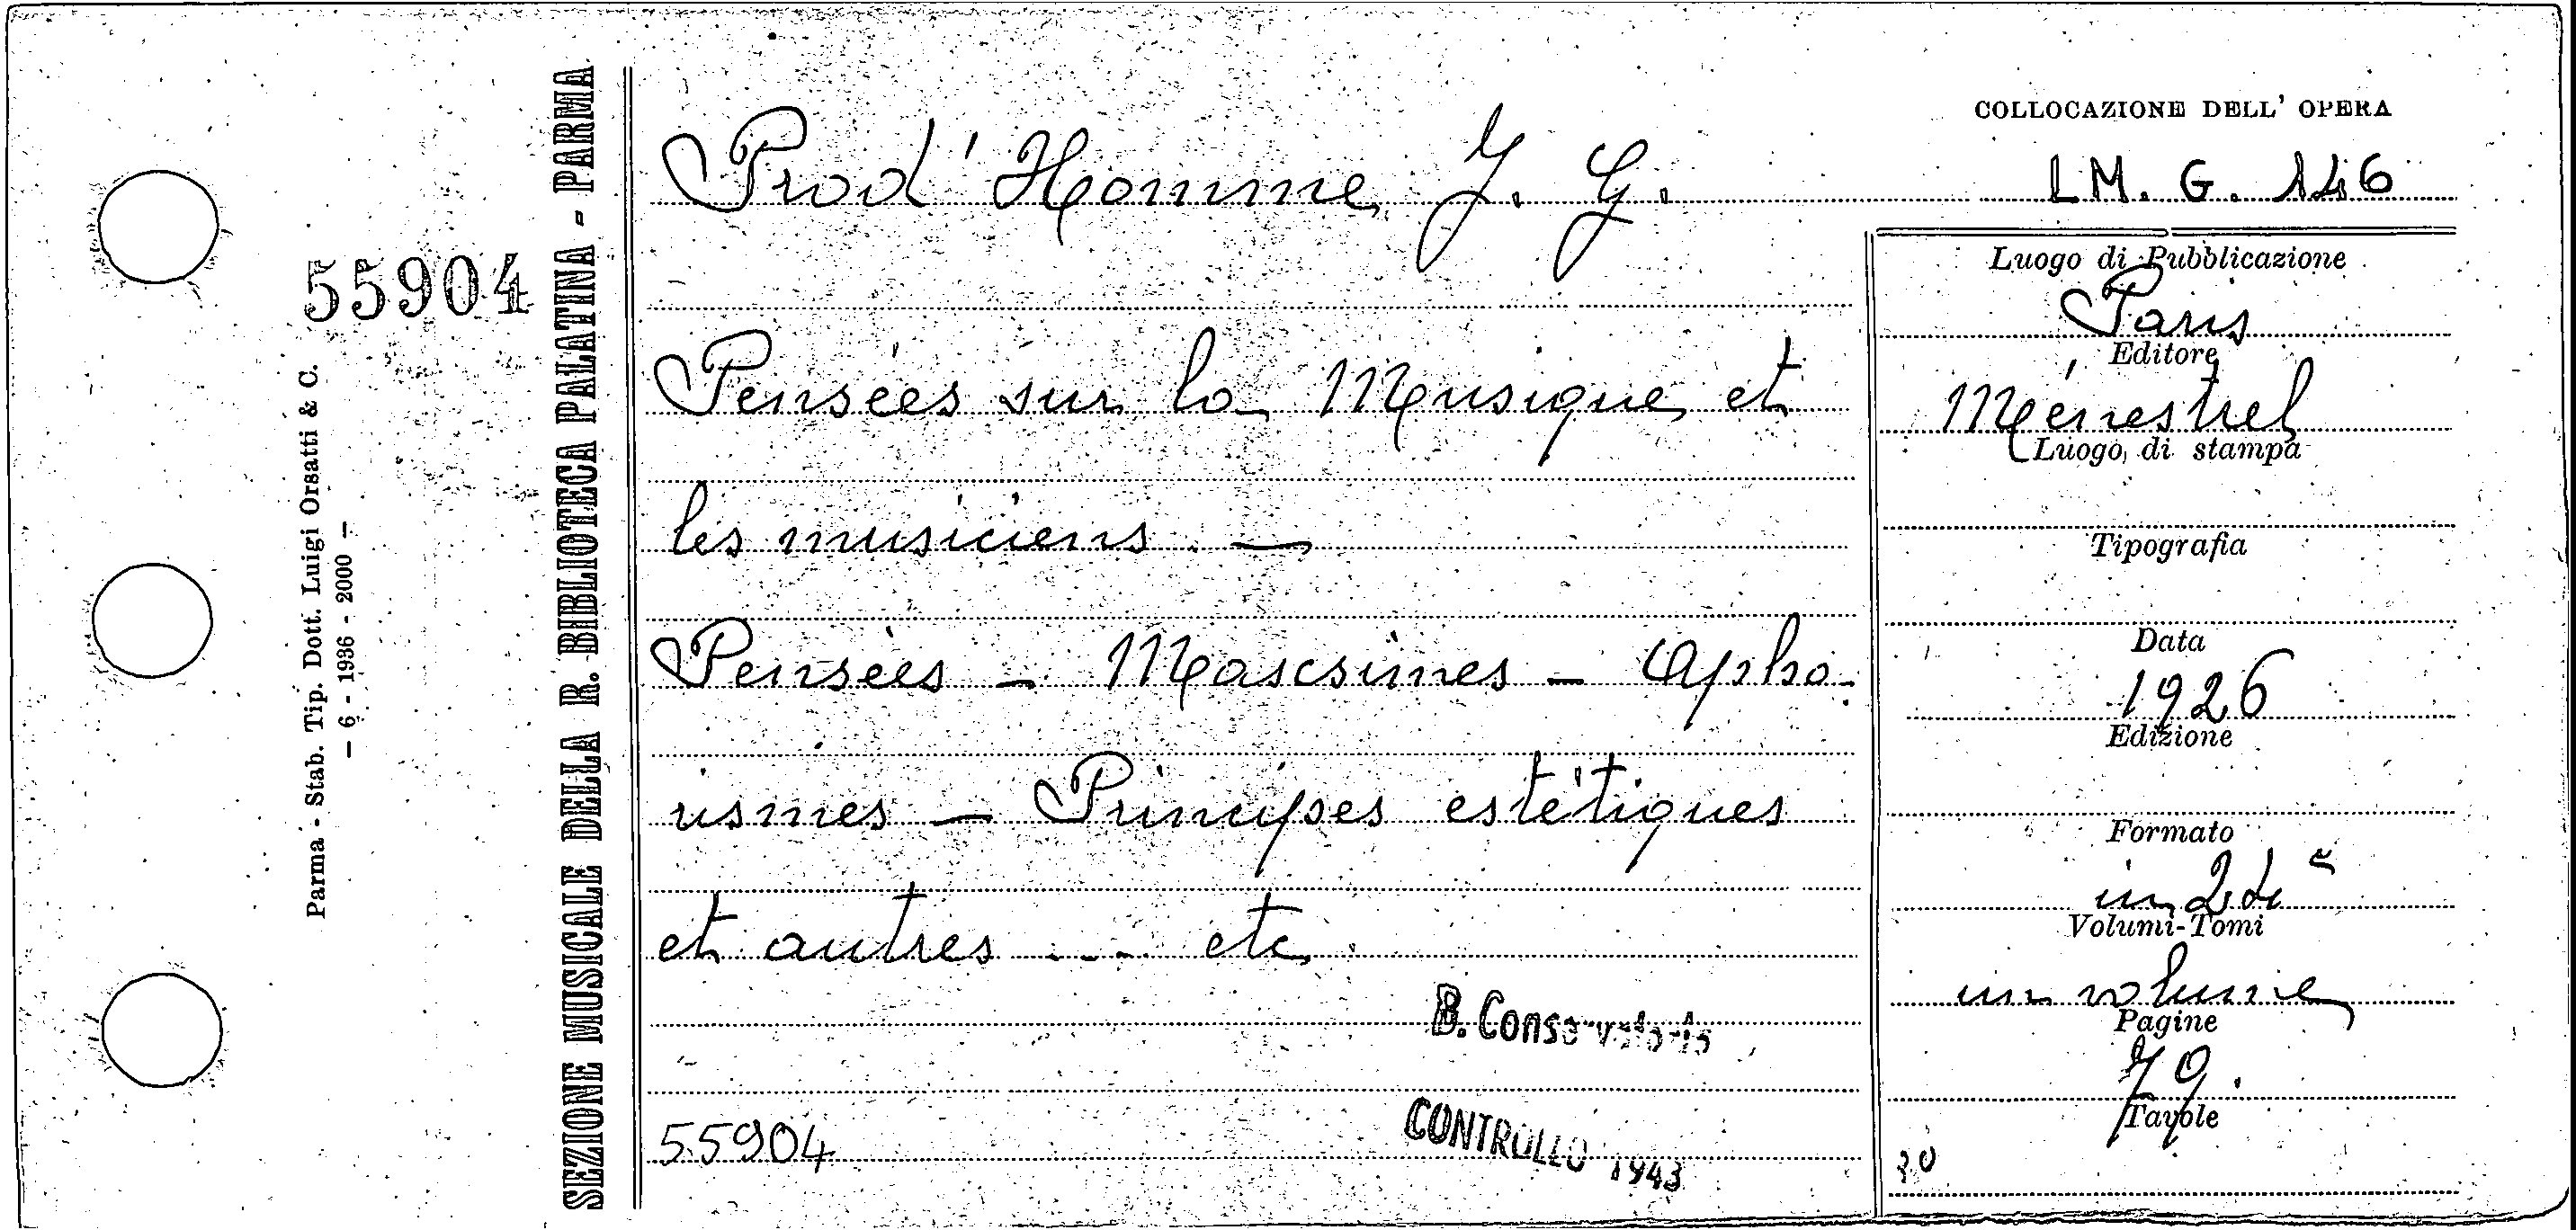 COLLOCAZIONE DELL' OPERA
LM. G. 146
Prod'Homme J. G.
Pensées sur la Musique et
les musiciens. —
Pensées — Mascsimes — Apho-
rismes — Principes estétiques
et autres .... etc.
B. Conservatorio
55904
CONTROLLO 1943
Luogo di Pubblicazione
Paris
Editore
Ménestrel
Luogo di stampa
Tipografia
Data
1926
Edizione
Formato
in 24°
Volumi-Tomi
un volume
Pagine
79.
Tavole
55904
SEZIONE MUSICALE DELLA R. BIBLIOTECA PALATINA - PARMA
Parma - Stab. Tip. Dott. Luigi Orsatti & C.
— 6 - 1936 - 2000 —